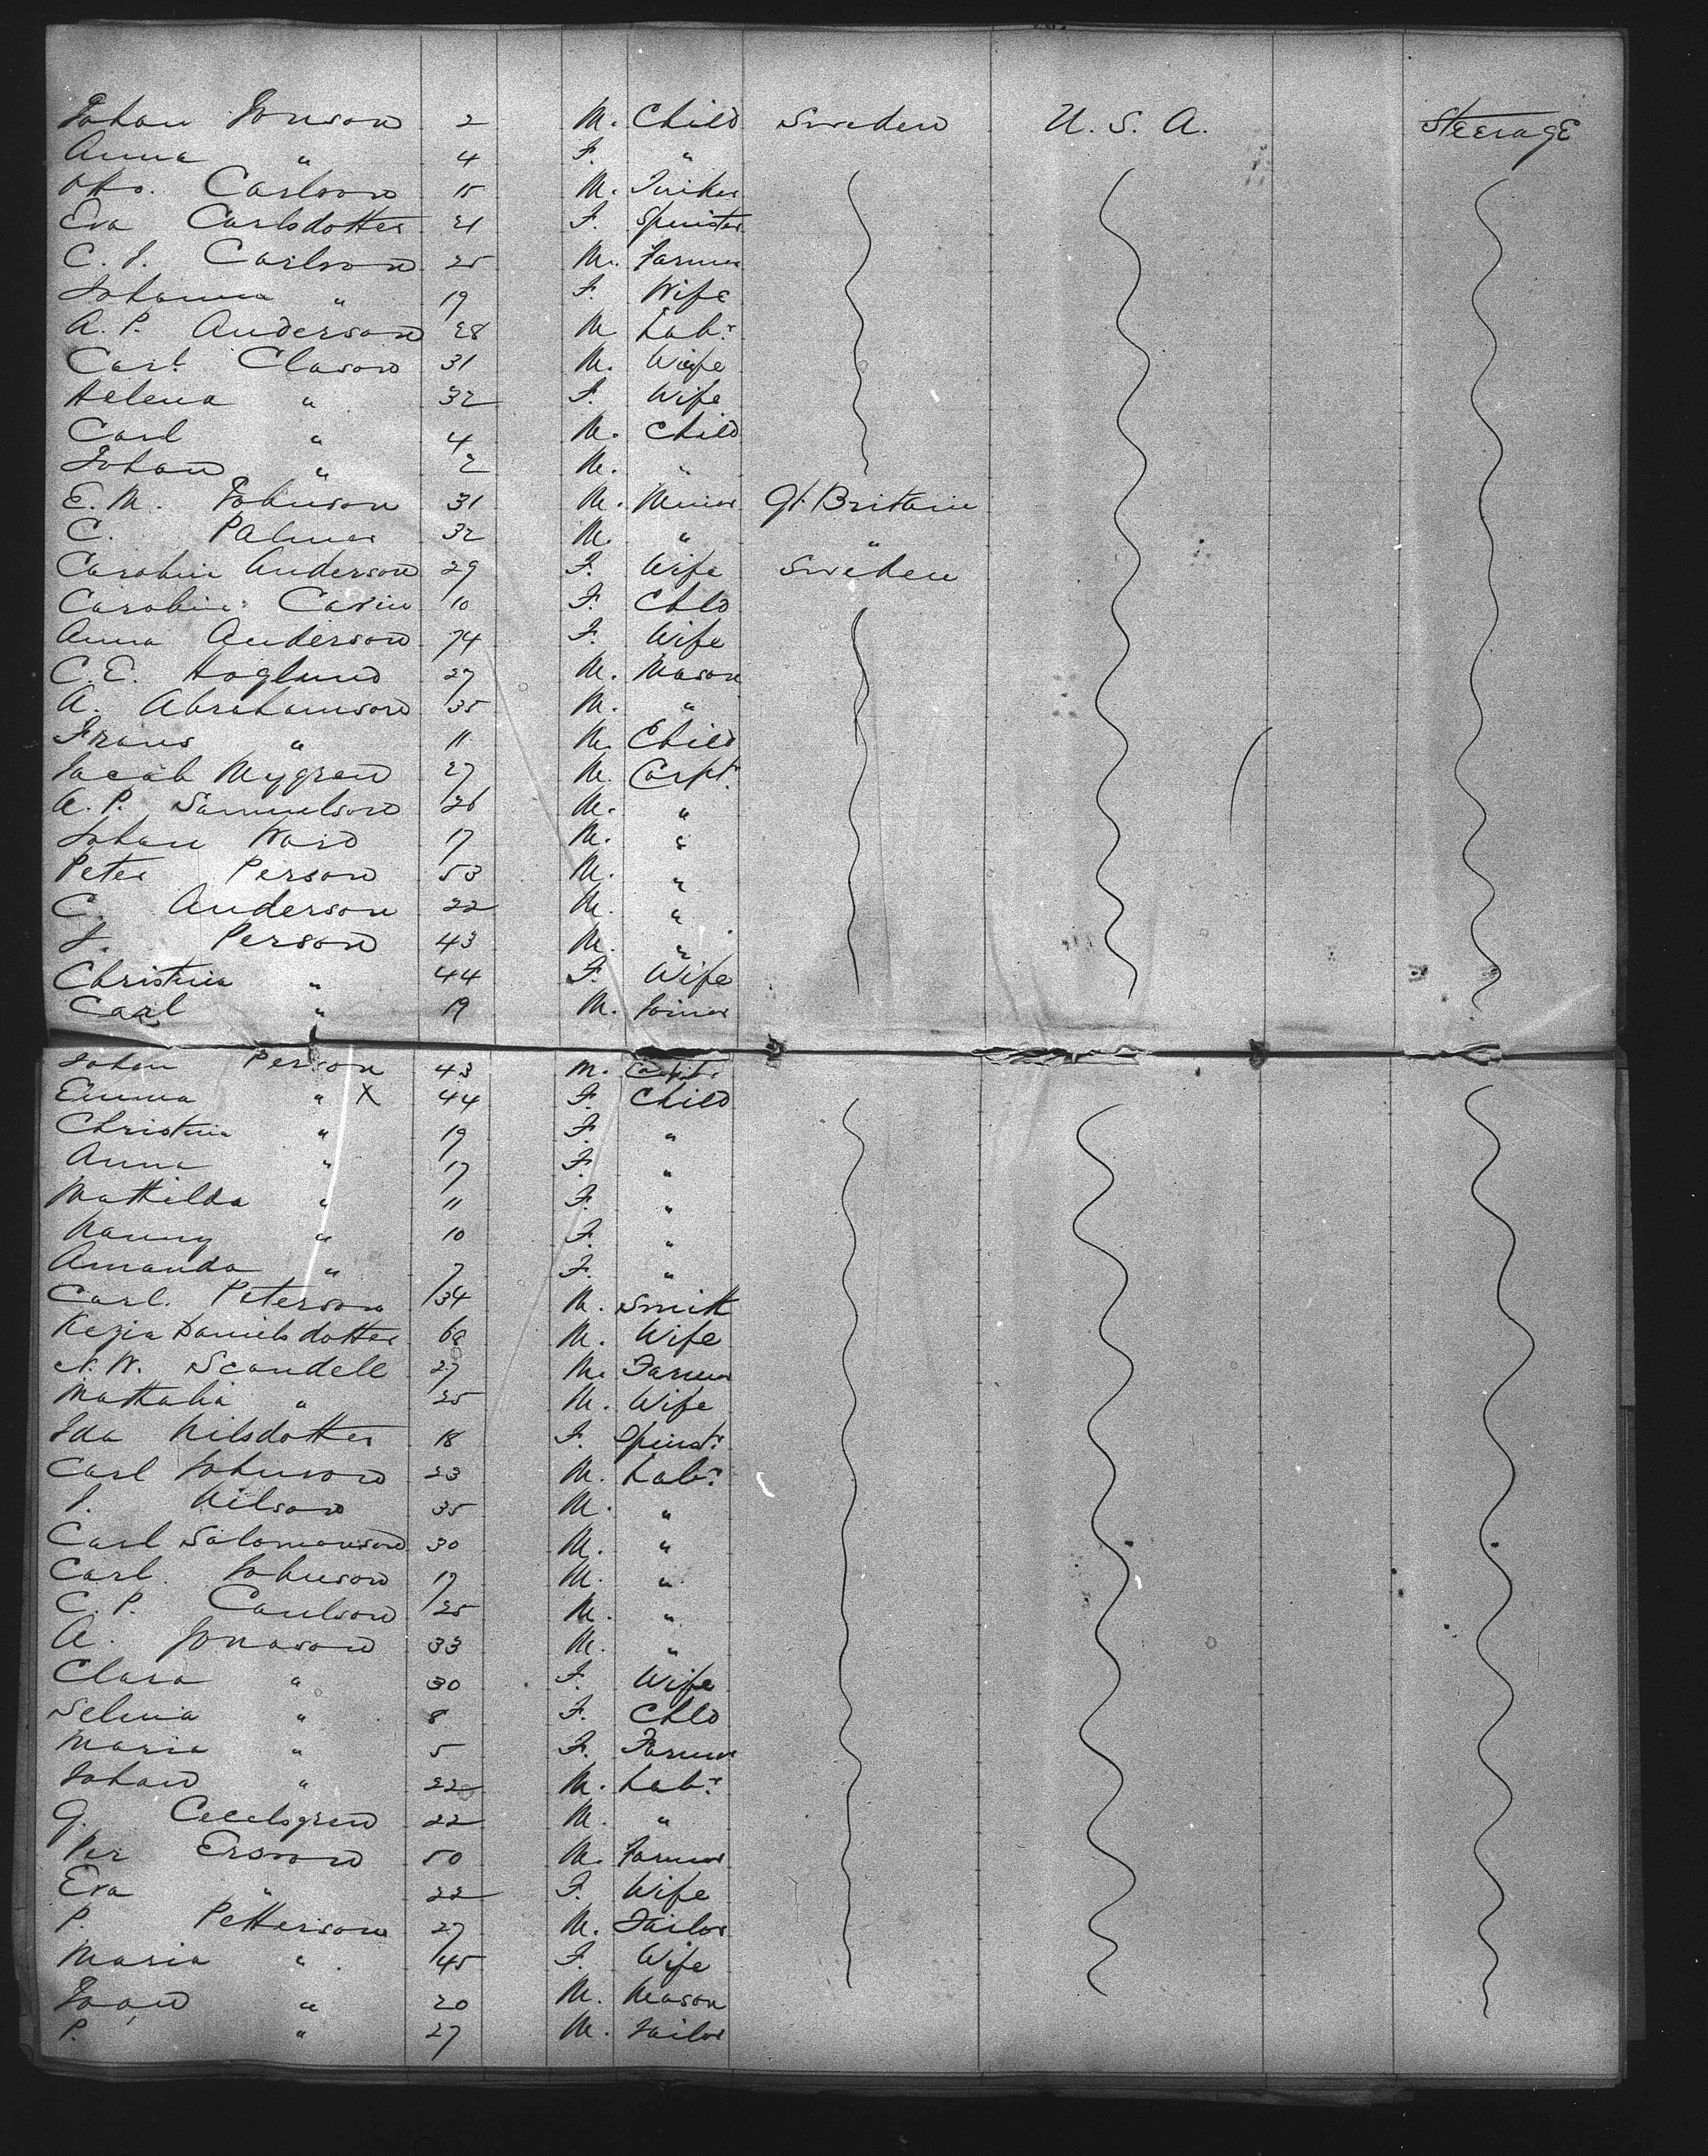 Johan Jonson 2 M. Child Sweden U. S. A. Steerage
Anna " 4 F. "
Otto. Carlson 15 M. Tinker
Eva Carlsdotter 21 F. Spinster
C. J. Carlson 25 M. Farmer
Johanna " 19 F. Wife
A. P. Anderson 28 M Labr
Carl Clason 31 M. Wife
Helena " 32 F. Wife
Carl " 4 M. Child
Johan " 2 M. "
E. M. Johnson 31 M. Miner Gt. Britain
C. Palmer 32 M. " "
Carolin Anderson 29 F. Wife Sweden
Carolin Carin 10 F. Chld
Anna Anderson 74 F. Wife
C. E. Hoglund 27 M. Mason
A. Abrahamson 35 M. "
Frans " 11 M. Child
Jacob Nygren 27 M. Carpt.
A. P. Samuelson 26 M. "
Johan Ward 17 M. "
Peter Person 53 M. "
C. Anderson 22 M. "
J. Person 43 M. "
Christina " 44 F. Wife
Carl " 19 M. Joiner
Johan Person 43 M.
Emma " X 44 F. Child
Christina " 19 F. "
Anna " 17 F. "
Mathilda " 11 F. "
Nanny " 10 F. "
Amanda " 7 F. "
Carl. Peterson 34 M. Smith
Kezia Danielsdotter 68 M. Wife
N. W. Scandell 27 M. Farmer
Mathalia " 25 M. Wife
Ida Nilsdotter 18 F. Spinstr
Carl Johnson 23 M. Labr
J. Nilson 35 M. "
Carl Salomonson 30 M. "
Carl. Johnson 17 M. "
C. P. Caulson 25 M. "
A. Jonason 33 M. "
Clara " 30 F. Wife
Selma " 8 F. Chld
Maria " 5 F. Farmer
Johan " 22 M. Labr
G. 22 M. "
Per Erson 50 M. Farmer
Eva " 22 F. Wife
P. Petterson 27 M. Tailor
Maria " 45 F. Wife
" 20 M. Mason
P. " 27 M. Tailor